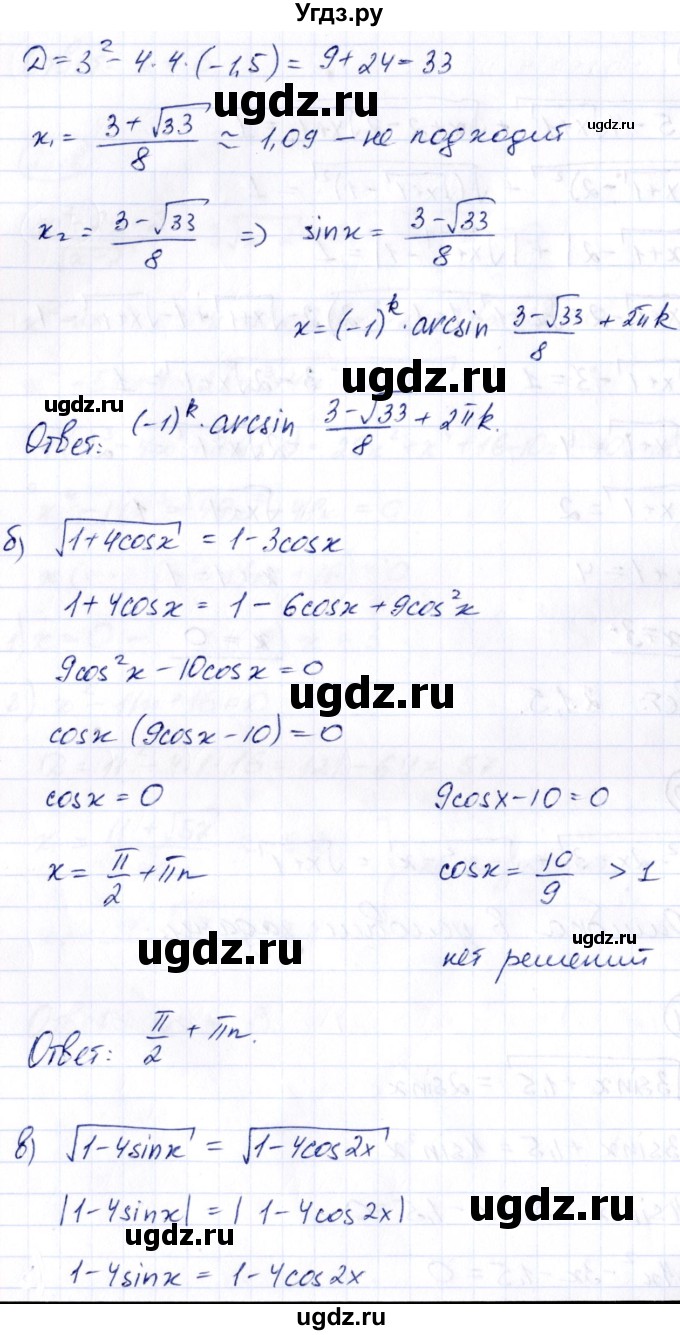 Угдз.ру
Д = 3² - 4·4·(-1,5) = 9 + 24 = 33
ugdz.ru
ugdz.ru
x₁ = (3 + √33)/8 ≈ 1,09 – не подходит
x₂ = (3 - √33)/8 => sinx = (3 - √33)/8
ugdz.ru
x = (-1)^k · arcsin (3 - √33)/8 + 2πk
ugdz.ru
ugdz.ru
Ответ: (-1)^k · arcsin (3 - √33)/8 + 2πk.
ugdz.ru
б) √(1+4cosx) = 1 - 3cosx
ugdz.ru
1 + 4cosx = 1 - 6cosx + 9cos²x
9cos²x - 10cosx = 0
ugdz.ru
cosx (9cosx - 10) = 0
ugdz.ru
cosx = 0 9cosx - 10 = 0
x = π/2 + πn cosx = 10/9 > 1
ugdz.ru
ugdz.ru
нет решений
Ответ: π/2 + πn.
ugdz.ru
ugdz.ru
в) √(1-4sinx) = √(1-4cos2x)
|1-4sinx| = |1-4cos2x|
ugdz.ru
ugdz.ru
1-4sinx = 1-4cos2x
ugdz.ru